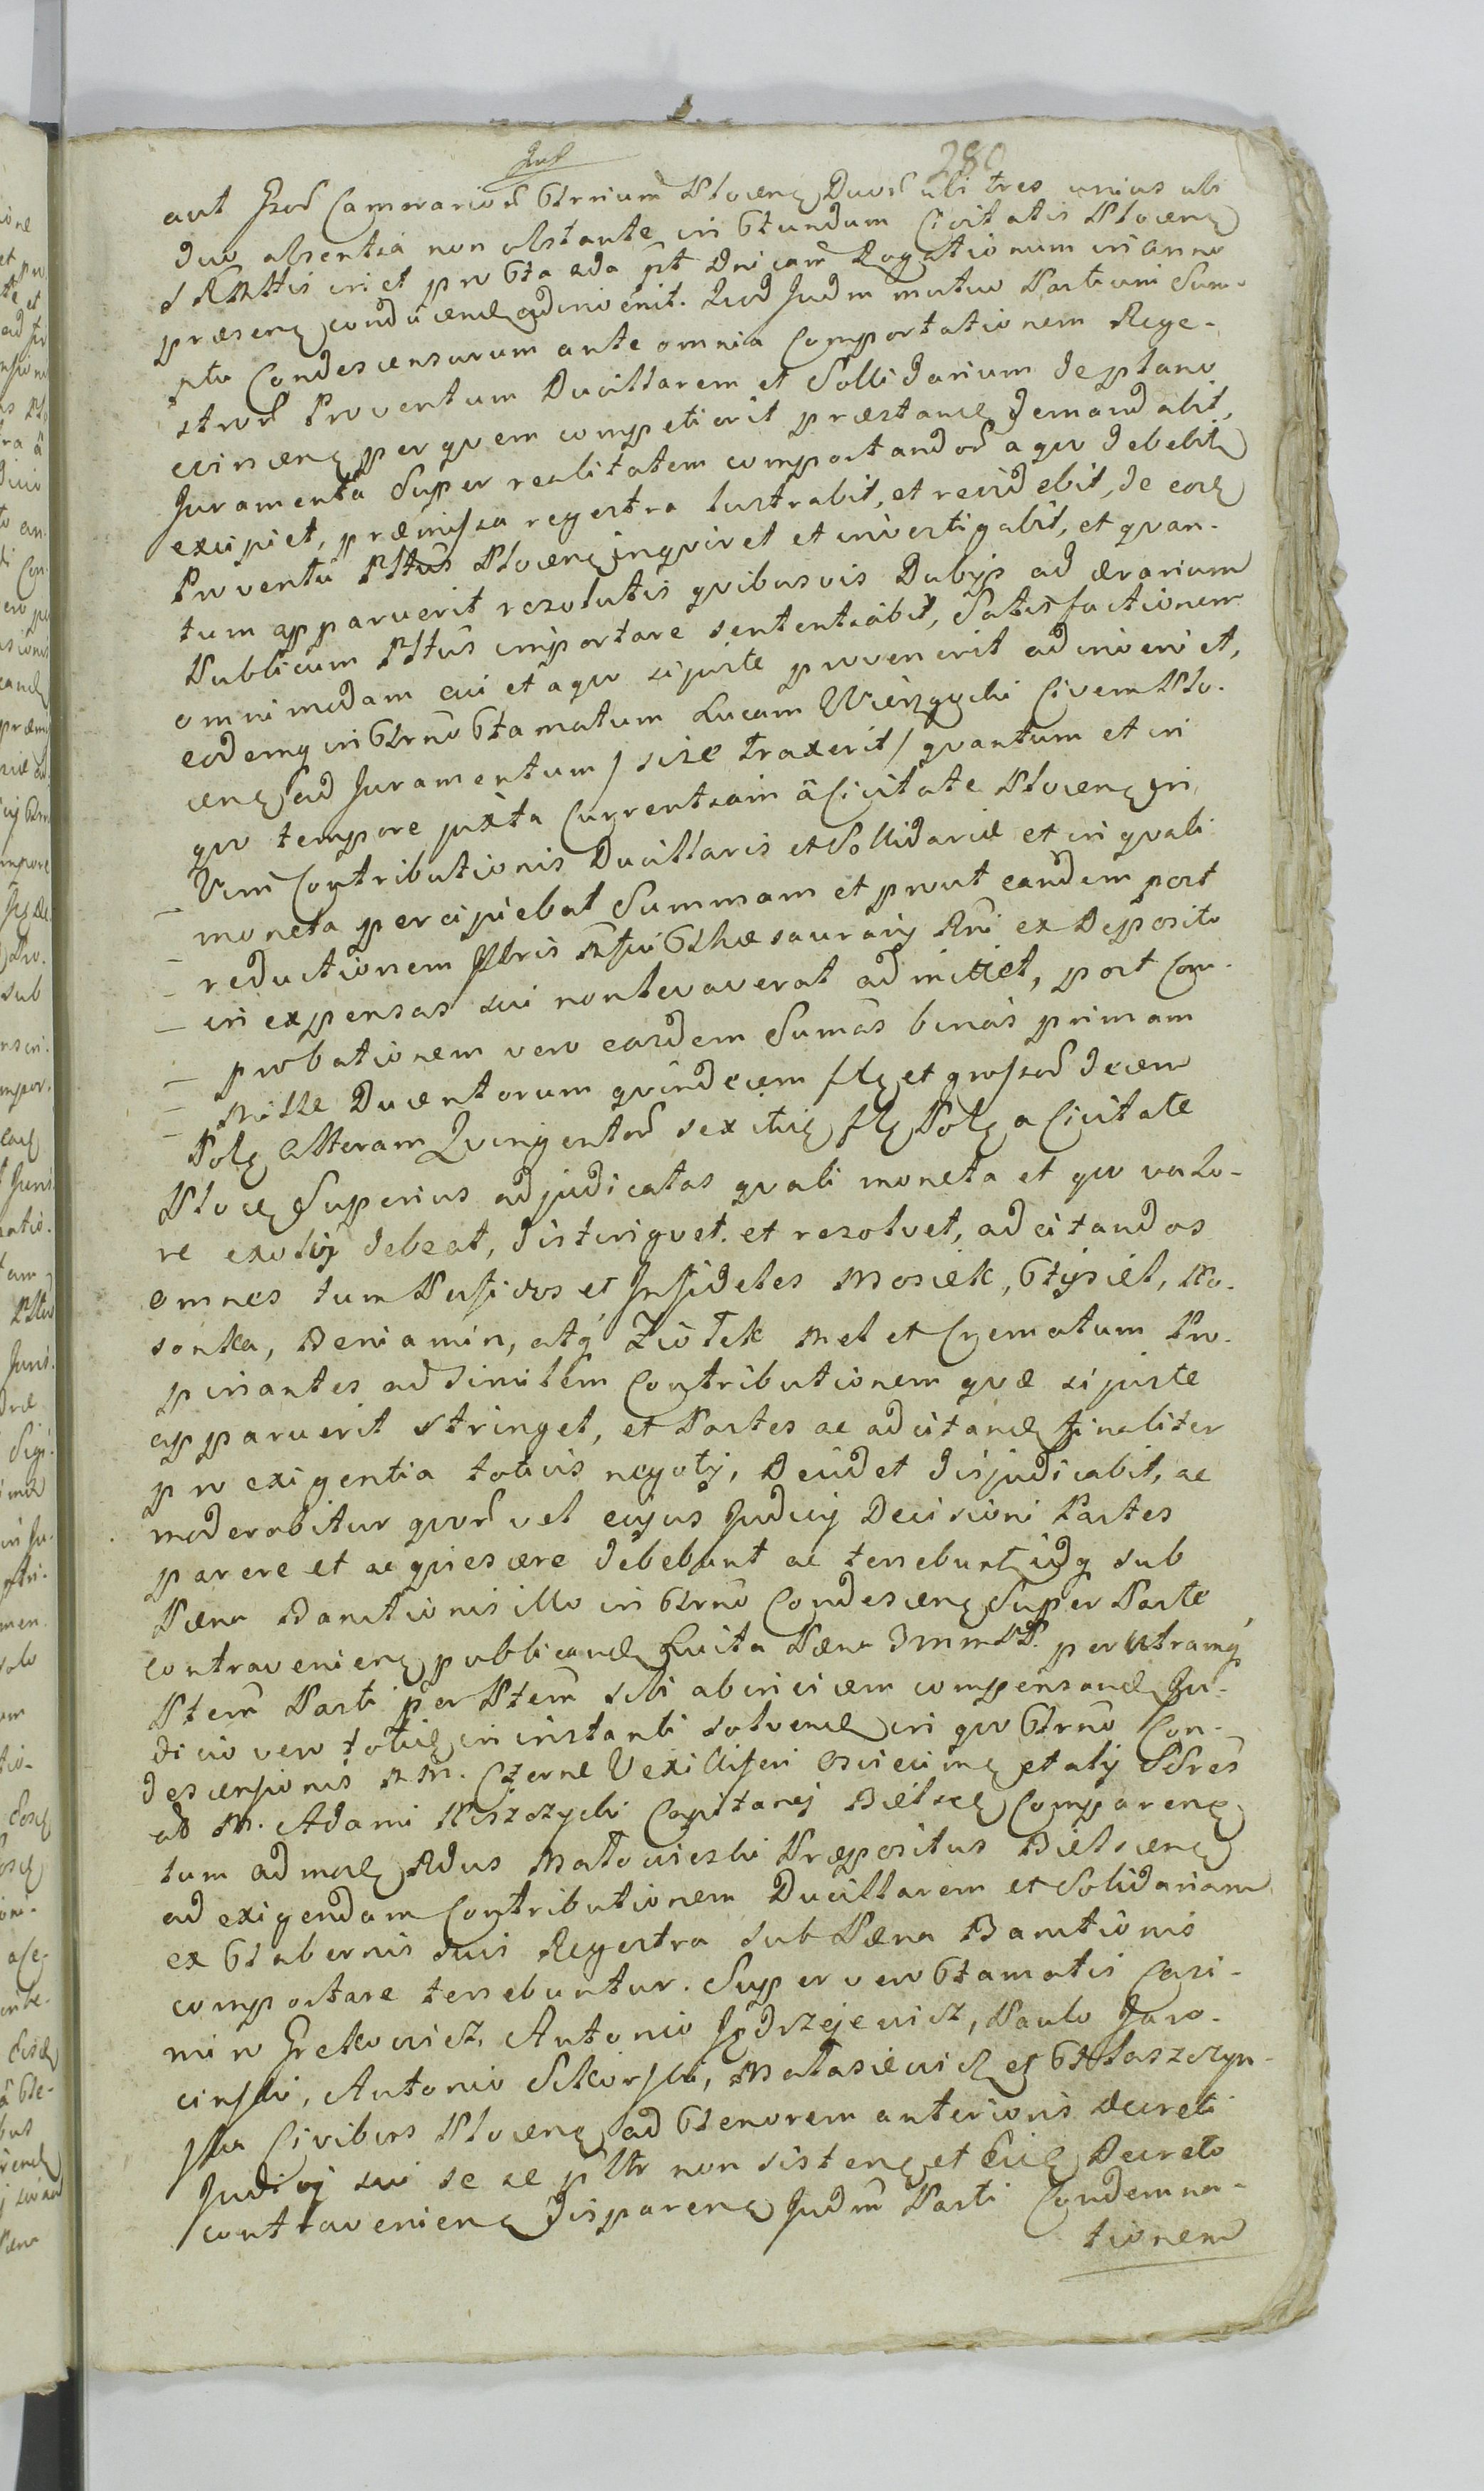 Jud
280
aut Jzod Camerariorum Terrium Plocen Duor ubi tres unius ubi
duo absentia non obstante in Fundum Civitatis Plocen
in et pro fta 2da pt Dnicam Rogationum in anno
præsen conducend adinvenit. Quod Judm mutuo Partium Sum-
ptu Condescensurum ante omnia Comportationem Rege-
stror Proventum Ducillarem et Sollidarium de plano
evincen per quem competierit præstand demandabit,
Juramenta Super realitatem comportandor a quo debebit
excipiet, præmissa regestra lustrabit, et revidebit, de eors
Proventu Pttus Plocen inquiret et investigabit, et quan-
tum apparuerit rezolutis quibusvis Dubijs ad ærarium
Publicum Pttus importare sententiabit, Satisfactionem
omnimodam cui et a quo si juste provenerit adinveniet,
eodemq in Termno Famatum Lucam Wierzycki Civem Plo-
cen ad Juramentum / si se traxerit / quantum et in
quo tempore juxta Currentiam â Civitate Plocen in
Vim Contributionis Ducillaris et Sollidariæ et in quali
moneta percipiebat Summam et prout eandem post
reductionem Thesaurarij Rni ex Deposito
in expensas sui non levaverat admittet, post Com-
probationem vero eardem Sumas binas primam
Mille Ducentorum quindecim fl et grossor decem
Pol alteram Quingentor sexties fl Pol a Civitate
Ploc Superius adjudicatas quali moneta et quo valo-
re exolvj debeat, distingvet et rezolvet, adcitandos
omnes tum Perfidos et Infideles Mosiek, Czysiel, Ko-
sonka, Beniamin, atq Ziotek Mel et Crematum Pro-
pinantes ad Similem Contributionem quæ si juste
apparuerit stringet, et Partes ac adcitand finaliter
pro exigentia totius negotij, Decidet disjudicabit, ac
moderabitur quor vel cujus Judicij Decisioni Partes
parere et acqviescere debebunt ac tenebunt idq sub
Pæna Banitionis illo in Termno Condescen Super Parte
contravenien publicand Luita Pæna 3 m mdP. per utramq
Ptem Parti per Ptem sibi abinvicem compensand Ju-
dicio vero toties in instanti solvend in quo Termno Con-
descensionis M M. Czerne Vexilliferi Osviecimen et alij SSres
ad M. Adami Keszzycki Capitanej Bielsc Comparen
tum admod Rdus Matowieski Præpositus Bielscen
ad exigendam Contributionem Ducillarem et Solidariam
ex Tabernis suis Regestra sub Pæna Banitionis
comportare tenebuntur. Super vero Famatis Casi-
miro Grekowicz, Antonio Jędrzejewicz, Paulo Jaro-
cinski, Antonio Sikorski, Matasiewicz et Błaszczyn-
ska Civibus Plocen ad Tenorem anterioris decreti
Judicij sui se se pltr non sisten et Eids Decreto
contravenien disparen Judm Parti Condemna-
tionem